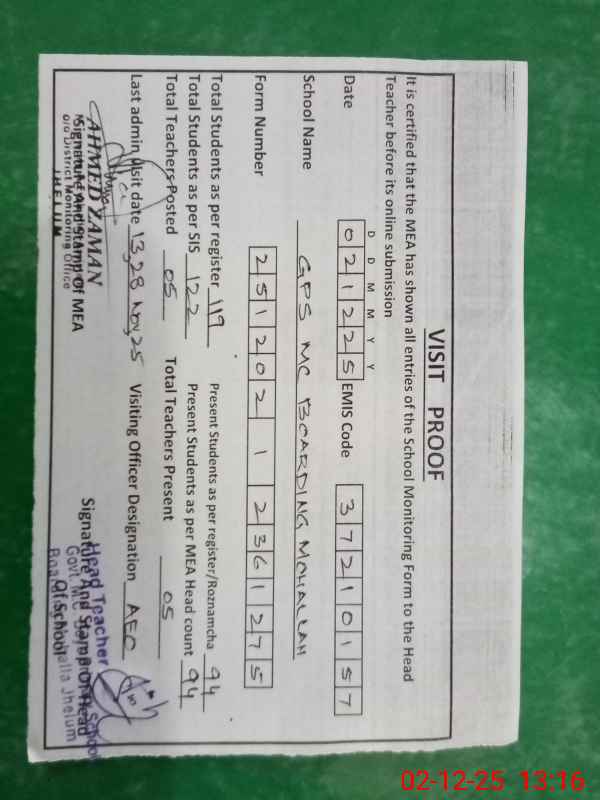 VISIT PROOF
It is certified that the MEA has shown all entries of the School Monitoring Form to the Head
Teacher before its online submission
D D M M Y Y
Date 0 2 1 2 2 5 EMIS Code 3 7 2 1 0 1 5 7
School Name GPS MC BOARDING MOHALLAH
Form Number 2 5 1 2 0 2 1 2 3 6 1 2 7 5
Total Students as per register 119 Present Students as per register/Roznamcha 94
Total Students as per SIS 122 Present Students as per MEA Head count 94
Total Teachers Posted 05 Total Teachers Present 05
Last admin visit date 13,28 Nov,25 Visiting Officer Designation AEO
AHMED ZAMAN
Signature And Stamp Of MEA
O/o District Monitoring Office
JHELUM
Head Teacher
Signature And Stamp Of Head
Of School
Govt. M.C School
Mohalla Jhelum
02-12-25 13:16